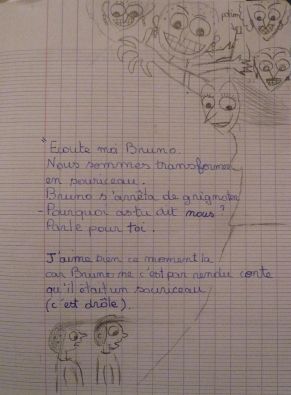 "Ecoute moi Bruno.
Nous sommes transformer
en souriceau.
Bruno s'arrêta de grignoter
- Pourquoi as tu dit nous ?
Parle pour toi.
J'aime bien ce moment la
car Bruno ne c'est pas rendu conte
qu'il était un souriceau
(c'est drôle).